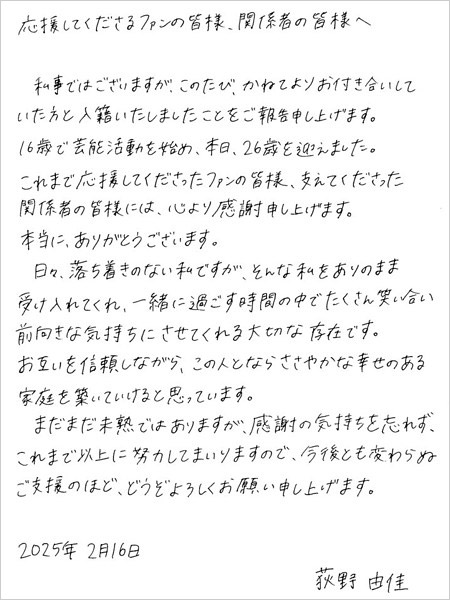 応援してくださるファンの皆様、関係者の皆様へ
私事ではございますが、このたび、かねてよりお付き合いして
いた方と入籍いたしましたことをご報告申し上げます。
16歳で芸能活動を始め、本日、26歳を迎えました。
これまで応援してくださったファンの皆様、支えてくださった
関係者の皆様には、心より感謝申し上げます。
本当に、ありがとうございます。
日々、落ち着きのない私ですが、そんな私をありのまま
受け入れてくれ、一緒に過ごす時間の中でたくさん笑い合い
前向きな気持ちにさせてくれる大切な存在です。
お互いを信頼しながら、この人とならささやかな幸せのある
家庭を築いていけると思っています。
まだまだ未熟ではありますが、感謝の気持ちを忘れず、
これまで以上に努力してまいりますので、今後とも変わらぬ
ご支援のほど、どうぞよろしくお願い申し上げます。
2025年 2月16日
荻野 由佳